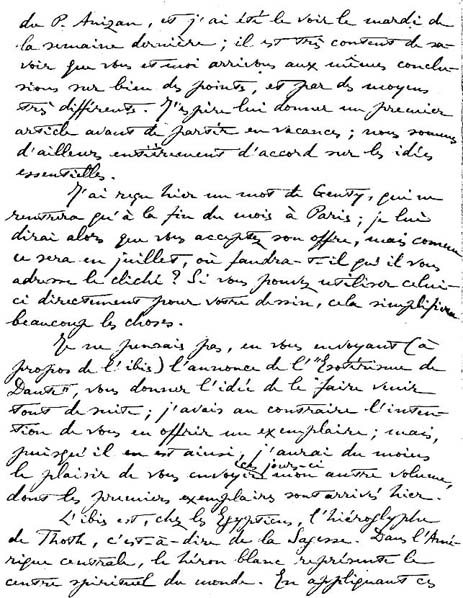 du P. Anizan, et j'ai été le voir le mardi de
la semaine dernière ; il est très content de sa-
voir que vous et moi arrivons aux mêmes conclu-
sions sur bien des points, et par des moyens
très différents. J'espère lui donner un premier
article avant de partir en vacances ; nous sommes
d'ailleurs entièrement d'accord sur les idées
essentielles.
J'ai reçu hier un mot de Genty, qui ne
rentrera qu'à la fin du mois à Paris ; je lui
dirai alors que vous acceptez son offre, mais comme
ce sera en juillet, où faudra-t-il qu'il vous
adresse le cliché ? Si vous pouvez utiliser celui-
ci directement pour votre dessin, cela simplifiera
beaucoup les choses.
Je ne pensais pas, en vous envoyant (à
propos de l'ibis) l'annonce de l'"Esotérisme de
Dante", vous donner l'idée de le faire venir
tout de suite ; j'avais au contraire l'inten-
tion de vous en offrir un exemplaire ; mais,
puisqu'il en est ainsi, j'aurai du moins
le plaisir de vous envoyer ces jours-ci mon autre volume,
dont les premiers exemplaires sont arrivés hier.
L'ibis est, chez les Egyptiens, l'hiéroglyphe
de Thoth, c'est-à-dire de la Sagesse. Dans l'Amé-
rique centrale, le héron blanc représente le
centre spirituel du monde. En appliquant ces